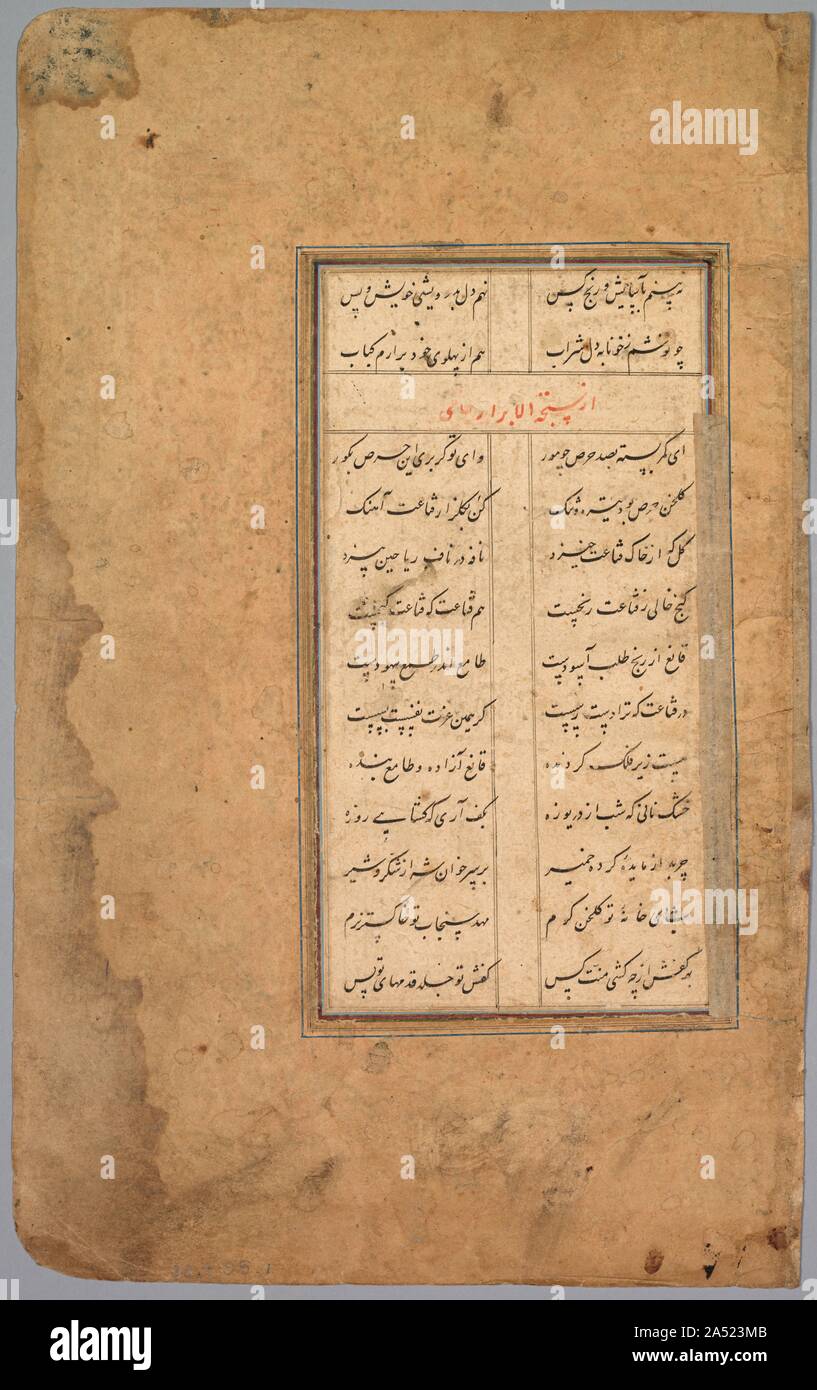 نهم دل بدرویشی خویش و بس
چو نوشم ز خونابه دل شراب هم از پهلوی خود برآرم کباب
از سبحة الابرار جامی
ای کمر بسته بصد حرص چو مور وای تو گر بری این حرص بگور
گلخن حرص بود تیره و تنگ کن بگلزار قناعت آهنگ
گل که از خاک قناعت خیزد نافه در ناف ریاحین بیزد
گنج خالی ز قناعت رنجیست هم قناعت که قناعت گنجیست
قانع از رنج طلب آسودست طامع اندر طمع بیهودست
در قناعت که ترا دست رسیست گر همین عزت نفسیست بسیست
چیست زیر فلک گردنده قانع آزاده و طامع بنده
خشک نانی که شب از دریوزه بکف آری که گشایی روزه
چربه از مایدهٔ کرده خمیر بر سر خوان شه از شکر و شیر
خانهٔ تو گلخن گرم مهد سنجاب تو خاکستر نرم
به کفش از چه کشی منت کس کفش تو جلد قدمهای تو بس
alamy
Image ID: 2A523MB
www.alamy.com